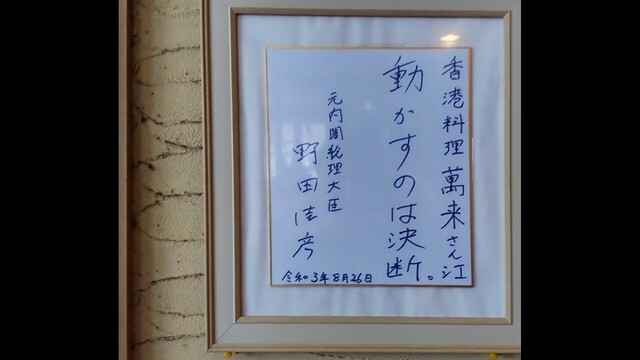 香港料理萬来さん江
動かすのは決断。
元内閣総理大臣
野田佳彦
令和3年8月26日